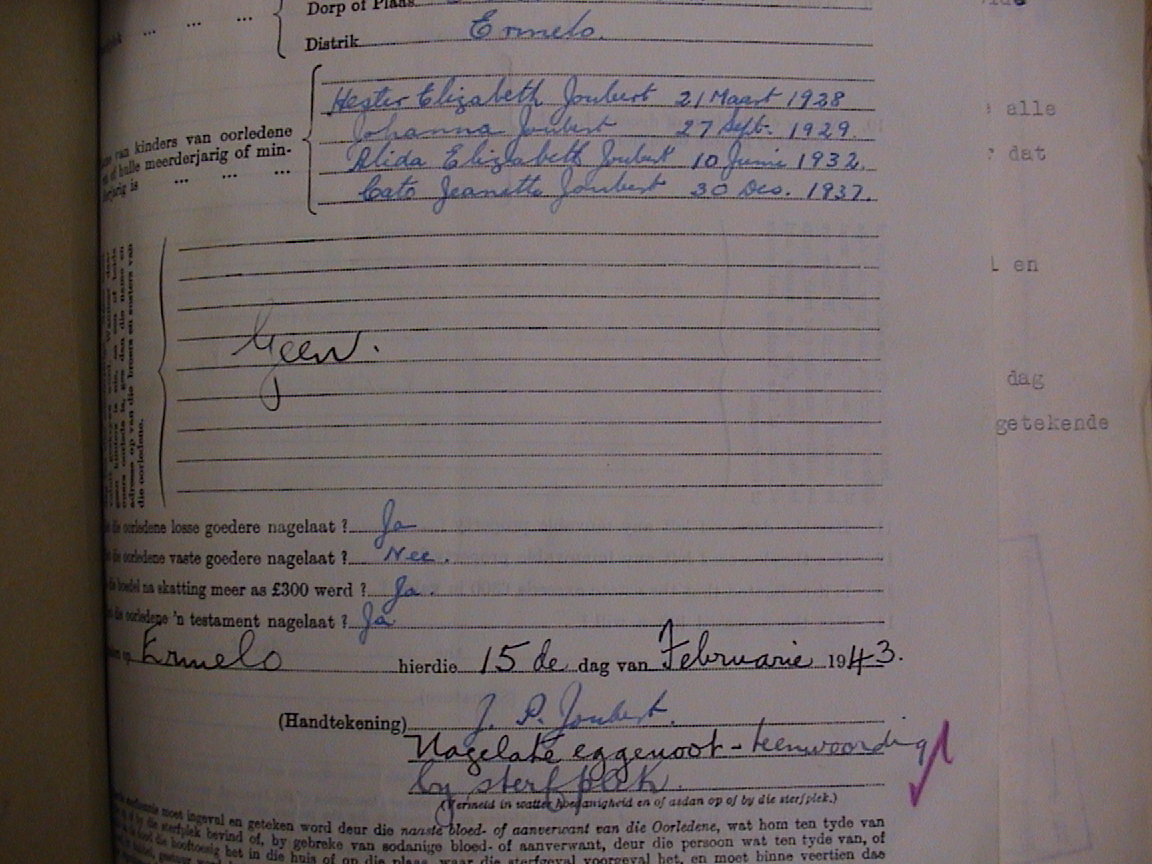 Dorp of Plaas
Distrik Ermelo.
Hester Elizabeth Joubert 21 Maart 1928
Johanna Joubert 27 Sept. 1929.
van kinders van oorledene
of hulle meerderjarig of min-
Alida Elizabeth Joubert 10 Junie 1932.
Cato Jeanette Joubert 30 Des. 1937.
Geen.
adresse op van die broers en susters van
die oorledene.
die oorledene losse goedere nagelaat ? Ja
die oorledene vaste goedere nagelaat ? Nee.
die boedel na skatting meer as £300 werd ? Ja.
die oorledene 'n testament nagelaat ? Ja
op Ermelo hierdie 15 de dag van Februarie 1943.
(Handtekening) J. P. Joubert.
Nagelate eggenoot - teenwoordig
by sterfplek.
(Vermeld in watter hoedanigheid en of aldan op of by die sterfplek.)
moet ingevul en geteken word deur die naaste bloed- of aanverwant van die Oorledene, wat hom ten tyde van
die sterfplek bevind of, by gebreke van sodanige bloed- of aanverwant, deur die persoon wat ten tyde van, of
het in die huis of op die plaas, waar die sterfgeval voorgeval het, en moet binne veertien dae
alle
dat
en
dag
getekende